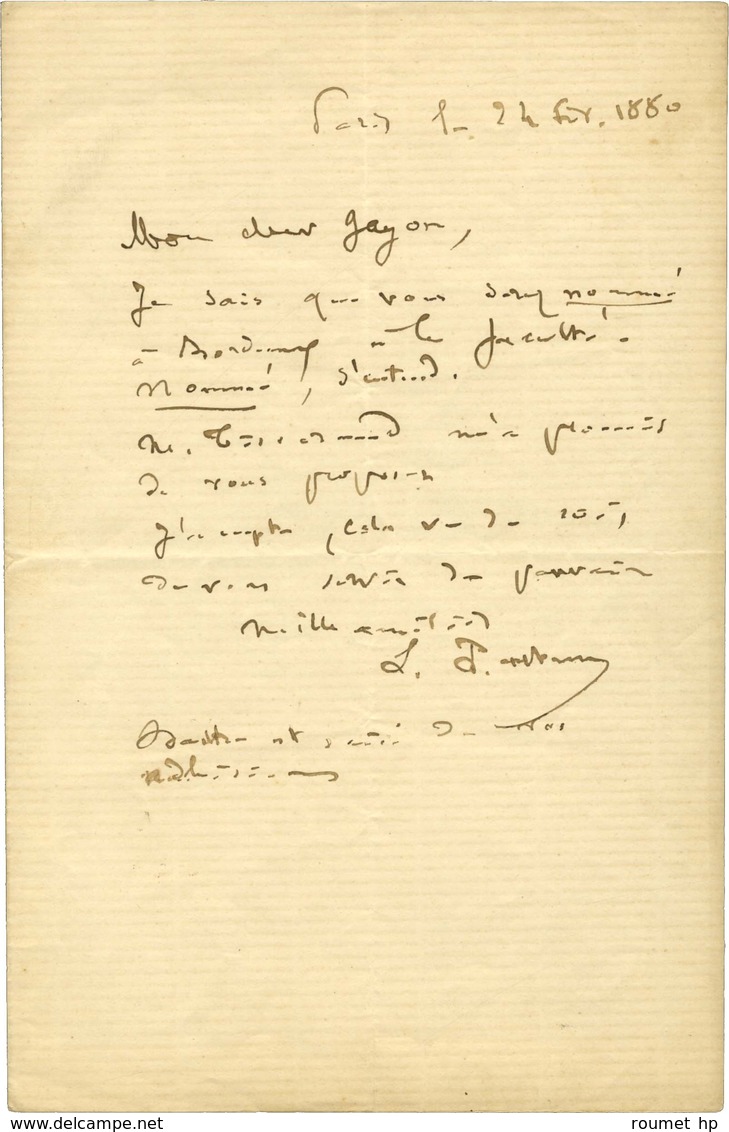 Paris le 24 fév. 1880
Mon cher Gayon,
Je sais que vous serez nommé
à Bordeaux à la faculté.
Nommé, s'entend.
m'a promis
de vous proposer
J'accepte, cela va de soi,
de vous servir de parrain
Mille amitiés
L. Pasteur
et de vos
roumet hp
www.delcampe.net